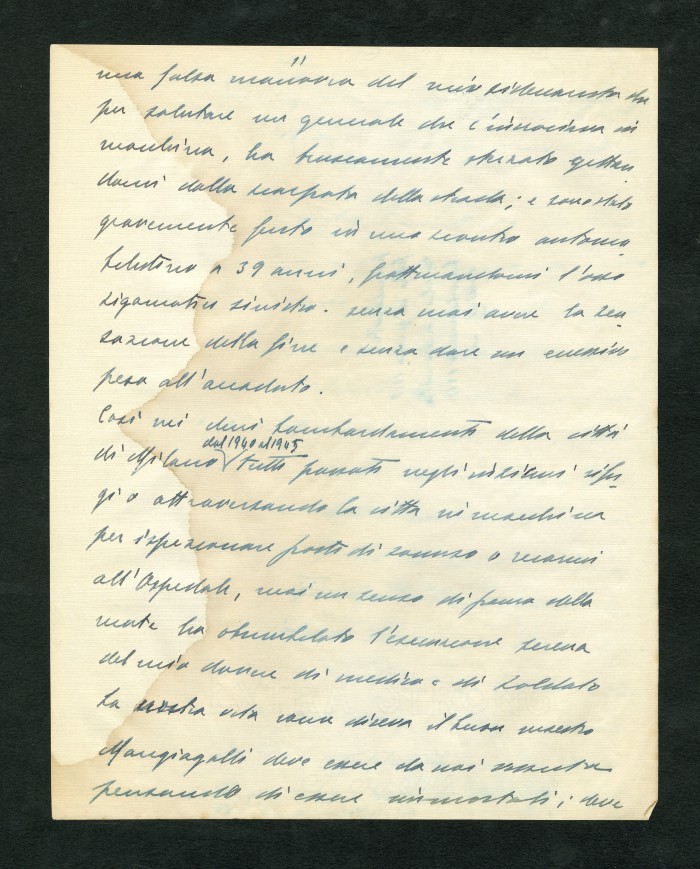 11
una falsa manovra del mio
per salutare un generale che c'incrociava in
macchina, ha bruscamente sterzato gettan
domi dalla scarpata della strada; e sono stato
gravemente ferito in uno scontro automo
bilistico a 39 anni, fratturandomi l'osso
zigomatico sinistro. senza mai avere la sen
sazione della fine e senza dare un eccessivo
peso all'accaduto.
Così nei bombardamenti della città
di Milano dal 1940 al 1945 tutti passati negli rifu
gi o attraversando la città in macchina
per ispezionare posti di soccorso o recarmi
all'Ospedale, mai un senso di paura della
morte ha obnubilato l'esecuzione serena
del mio dovere di medico e di soldato
La nostra vita come diceva il buon maestro
Mangiagalli deve essere da noi vissuta
pensando di essere immortali; deve